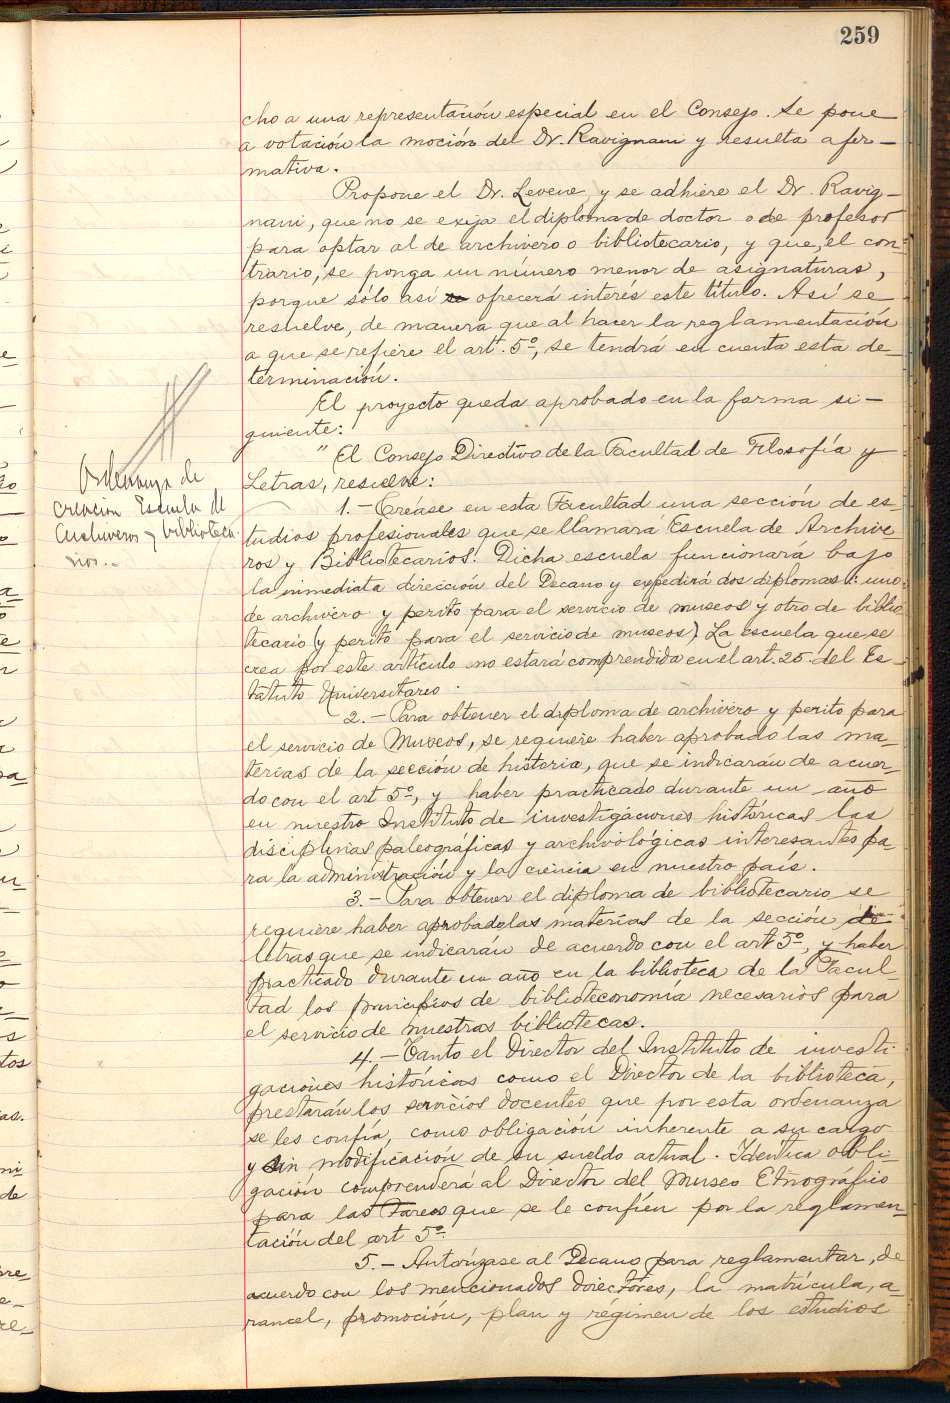 259
cho a una representación especial en el Consejo. Se pone
a votación la moción del Dr. Ravignani y resulta afir-
mativa.
Propone el Dr. Levene y se adhiere el Dr. Ravig-
nani, que no se exija el diploma de doctor o de profesor
para optar al de archivero o bibliotecario, y que, el con-
trario, se ponga un número menor de asignaturas,
porque sólo así se ofrecerá interés este título. Así se
resuelve, de manera que al hacer la reglamentación
a que se refiere el art. 5º, se tendrá en cuenta esta de-
terminación.
El proyecto queda aprobado en la forma si-
guiente:
"El Consejo Directivo de la Facultad de Filosofía y
Letras, resuelve:
Ordenanza de
creación Escuela de
Archiveros y biblioteca-
rios..
1.- Créase en esta Facultad una sección de es-
tudios profesionales que se llamara Escuela de Archive-
ros y Bibliotecarios. Dicha escuela funcionará bajo
la inmediata dirección del Decano y expedirá dos diplomas: uno
de archivero y perito para el servicio de museos y otro de biblio-
tecario (y perito para el servicio de museos). La escuela que se
crea por este artículo no estará comprendida en el art. 25. del Es-
tatuto Universitario.
2.- Para obtener el diploma de archivero y perito para
el servicio de Museos, se requiere haber aprobado las ma-
terias de la sección de historia, que se indicarán de acuer-
do con el art 5º, y haber practicado durante un año
en nuestro Instituto de investigaciones históricas las
disciplinas paleográficas y archivológicas interesantes pa-
ra la administración y la ciencia en nuestro país.
3.- Para obtener el diploma de bibliotecario se
requiere haber aprobado las materias de la sección de
letras que se indicarán de acuerdo con el art 5º, y haber
practicado durante un año en la biblioteca de la Facul-
tad los principios de biblioteconomía necesarios para
el servicio de nuestras bibliotecas.
4.- Tanto el Director del Instituto de investi-
gaciones históricas como el Director de la biblioteca,
prestarán los servicios docentes que por esta ordenanza
se les confía, como obligación inherente a su cargo
y sin modificación de su sueldo actual. Idéntica obli-
gación comprenderá al Director del Museo Etnográfico
para las tareas que se le confíen por la reglamen-
tación del art 5º.
5.- Autorízase al Decano para reglamentar, de
acuerdo con los mencionados directores, la matrícula, a-
rancel, promoción, plan y regimen de los estudios